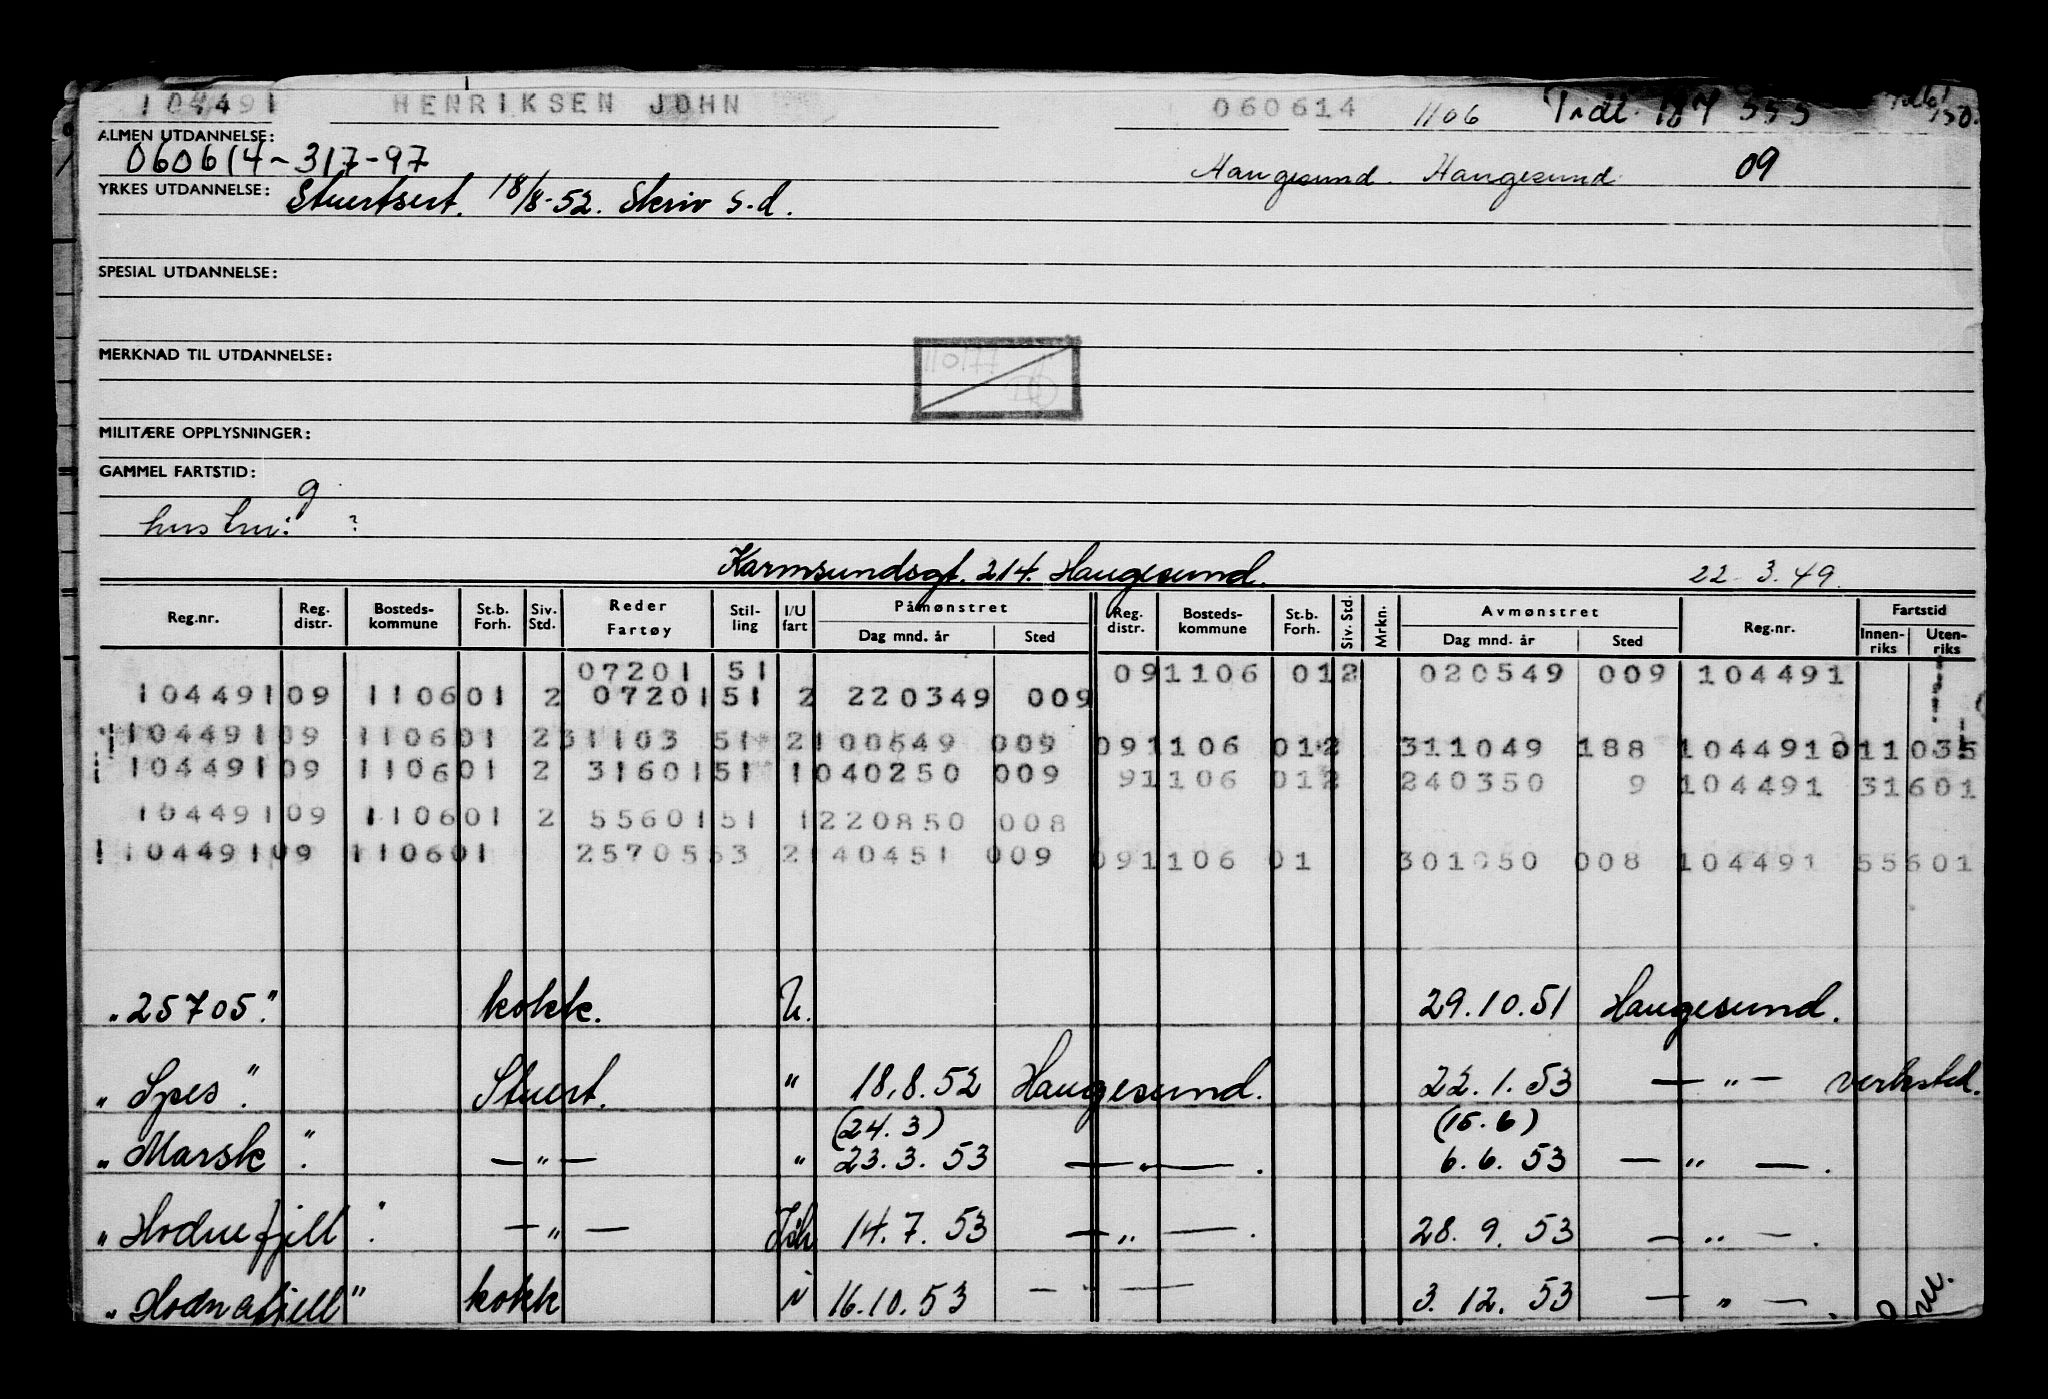 104491 HENRIKSEN JOHN 060614 1106
ALMEN UTDANNELSE:
060614-317-97 Haugesund. Haugesund 09
YRKES UTDANNELSE: Stuertsert. 18/8-52. Skriv s.d.
SPESIAL UTDANNELSE:
MERKNAD TIL UTDANNELSE:
110177
MILITÆRE OPPLYSNINGER:
GAMMEL FARTSTID:
g
hustru: ?
Karmsundsgt. 214. Haugesund. 22.3.49.
Reg.nr. Reg. distr. Bosteds- kommune St.b. Forh. Siv. Std. Reder Fartøy Stil- ling I/U fart Påmønstret Dag mnd. år Sted Reg. distr. Bosteds- kommune St.b. Forh. Siv. Std. Mrkn. Avmønstret Dag mnd. år Sted Reg.nr. Fartstid Innen- riks Uten- riks
07201 51 091106 012 020549 009 104491
104491 09 1106 01 2 07201 51 2 220349 009
104491 09 1106 01 2 31103 51 2 100649 009 091106 012 311049 188 104491 011035
104491 09 1106 01 2 31601 51 1 040250 009 91106 012 240350 9 104491 31601
104491 09 1106 01 2 55601 51 1 220850 008
104491 09 1106 01 25705 53 2 140451 009 091106 01 301050 008 104491 55601
"25705." kokk. U. 29.10.51 Haugesund.
"Spes". Stuert. " 18.8.52 Haugesund. 22.1.53 — " — verksted.
(24.3) (15.6)
"Marsk". — " — " 23.3.53 — " — . 6.6.53 — " — .
"Hodnefjell". — " — 14.7.53 — " — . 28.9.53 — " — .
"Hodnafjell" kokk i 16.10.53 — " — 3.12.53 — " — .